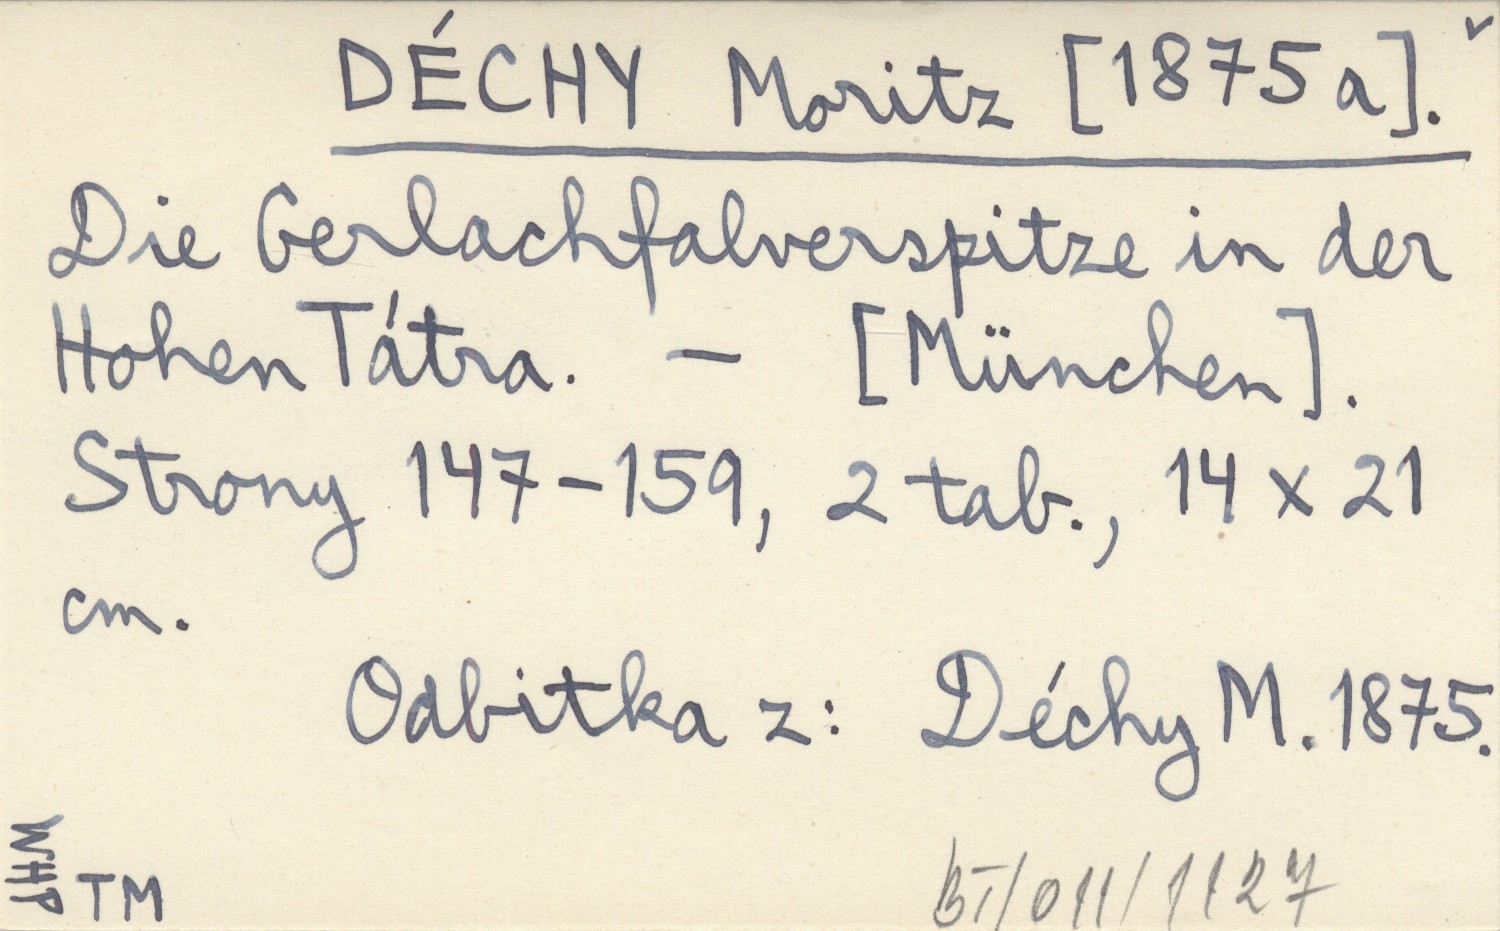 DÉCHY Moritz [1875a].
Die Gerlachfalverspitze in der
Hohen Tátra. – [München].
Strony 147-159, 2 tab., 14 x 21
cm.
Odbitka z: Déchy M. 1875.
WHP
TM
BT/011/1127